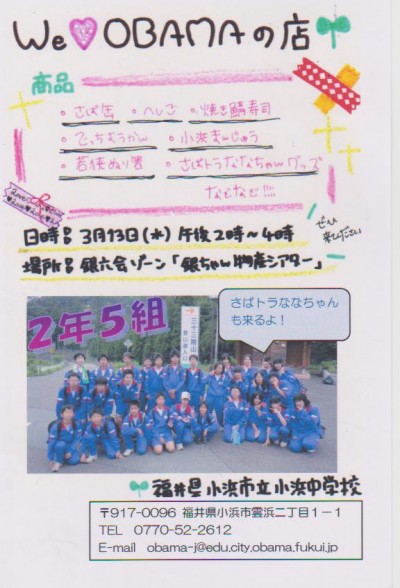 We♡OBAMAの店
商品
・さば缶 ・へしこ ・焼き鯖寿司
・でっちようかん ・小浜まんじゅう
・若狭ぬり箸 ・さばトラななちゃんグッズ
などなど!!!
日時：3月13日(木)午後2時〜4時
ぜひ
来てください
場所：銀六会ゾーン「銀ちゃん物産シアター」
2年5組
さばトラななちゃん
も来るよ！
三十三間山
登山道入口
福井県小浜市立小浜中学校
〒917-0096 福井県小浜市雲浜二丁目1－1
TEL 0770-52-2612
E-mail obama-j@edu.city.obama.fukui.jp